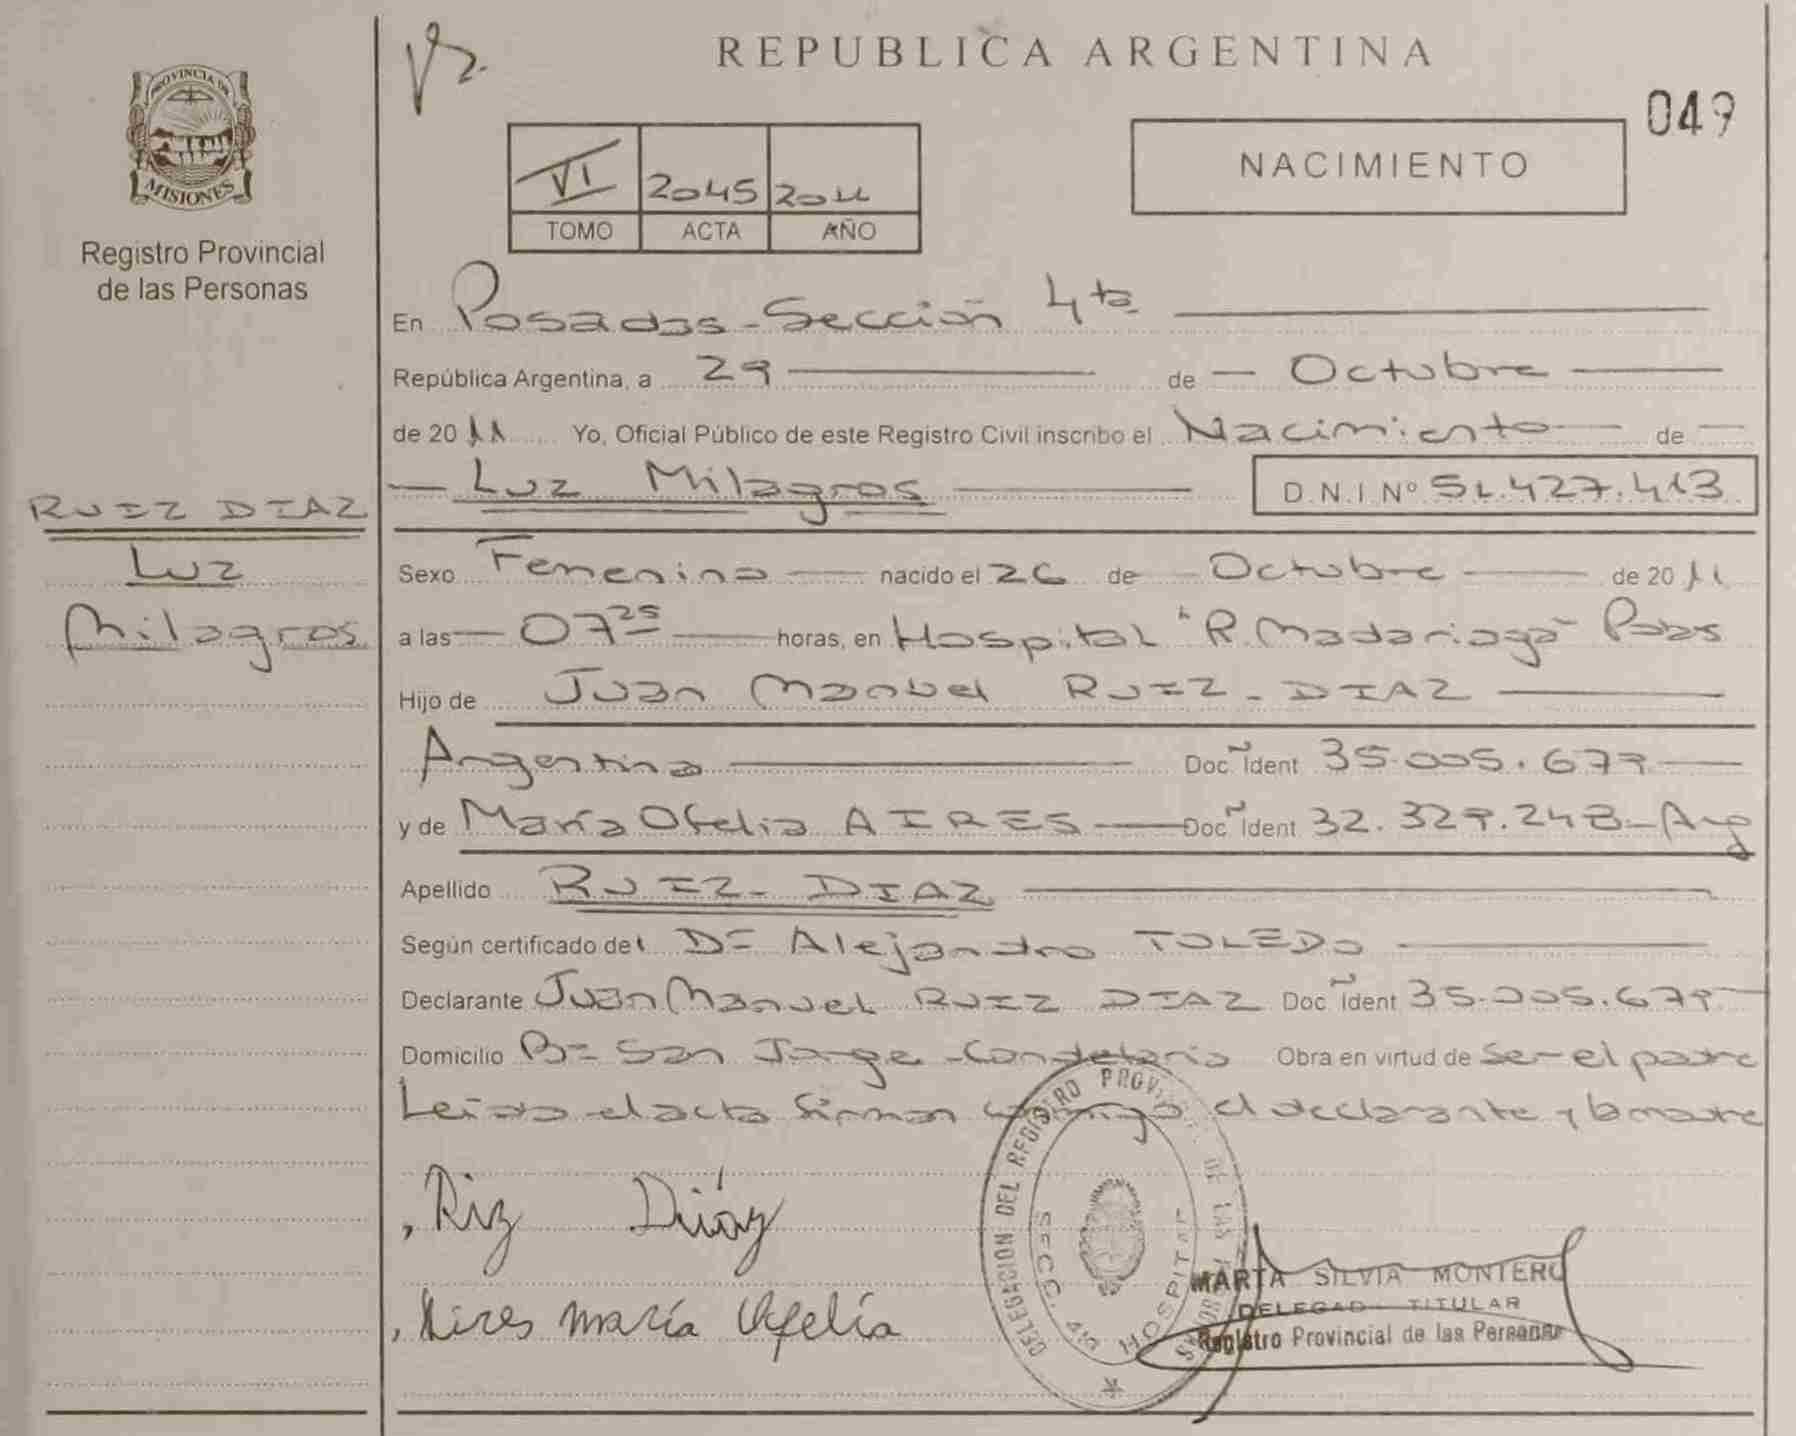 PROVINCIA DE
MISIONES
Registro Provincial
de las Personas
RUIZ DIAZ
Luz
Milagros
REPUBLICA ARGENTINA
049
NACIMIENTO
VI 2045 2011
TOMO ACTA AÑO
En Posadas - Sección 4ta
República Argentina, a 29 de Octubre
de 2011 Yo, Oficial Público de este Registro Civil inscribo el Nacimiento de
Luz Milagros D.N.I Nº 51.427.413
Sexo Femenino nacido el 26 de Octubre de 2011
a las 07 25 horas, en Hospital "R. Madariaga" Pdas
Hijo de Juan Manuel RUIZ - DIAZ
Argentina Doc Ident 35.005.679
y de María Ofelia AIRES Doc Ident 32.329.248 - Arg
Apellido RUIZ - DIAZ
Según certificado del Dr Alejandro TOLEDO
Declarante Juan Manuel RUIZ DIAZ Doc Ident 35.005.679
Domicilio Bº San Jorge - Candelaria Obra en virtud de Ser el padre
Leida el acta firman conmigo el declarante y la madre
Riz Diíaz
Aires María Ofelia
DELEGACION DEL REGISTRO DE LAS
SECC. 4ta HOSPITAL
MARTA SILVIA MONTERO
DELEGADO TITULAR
Registro Provincial de las Personas